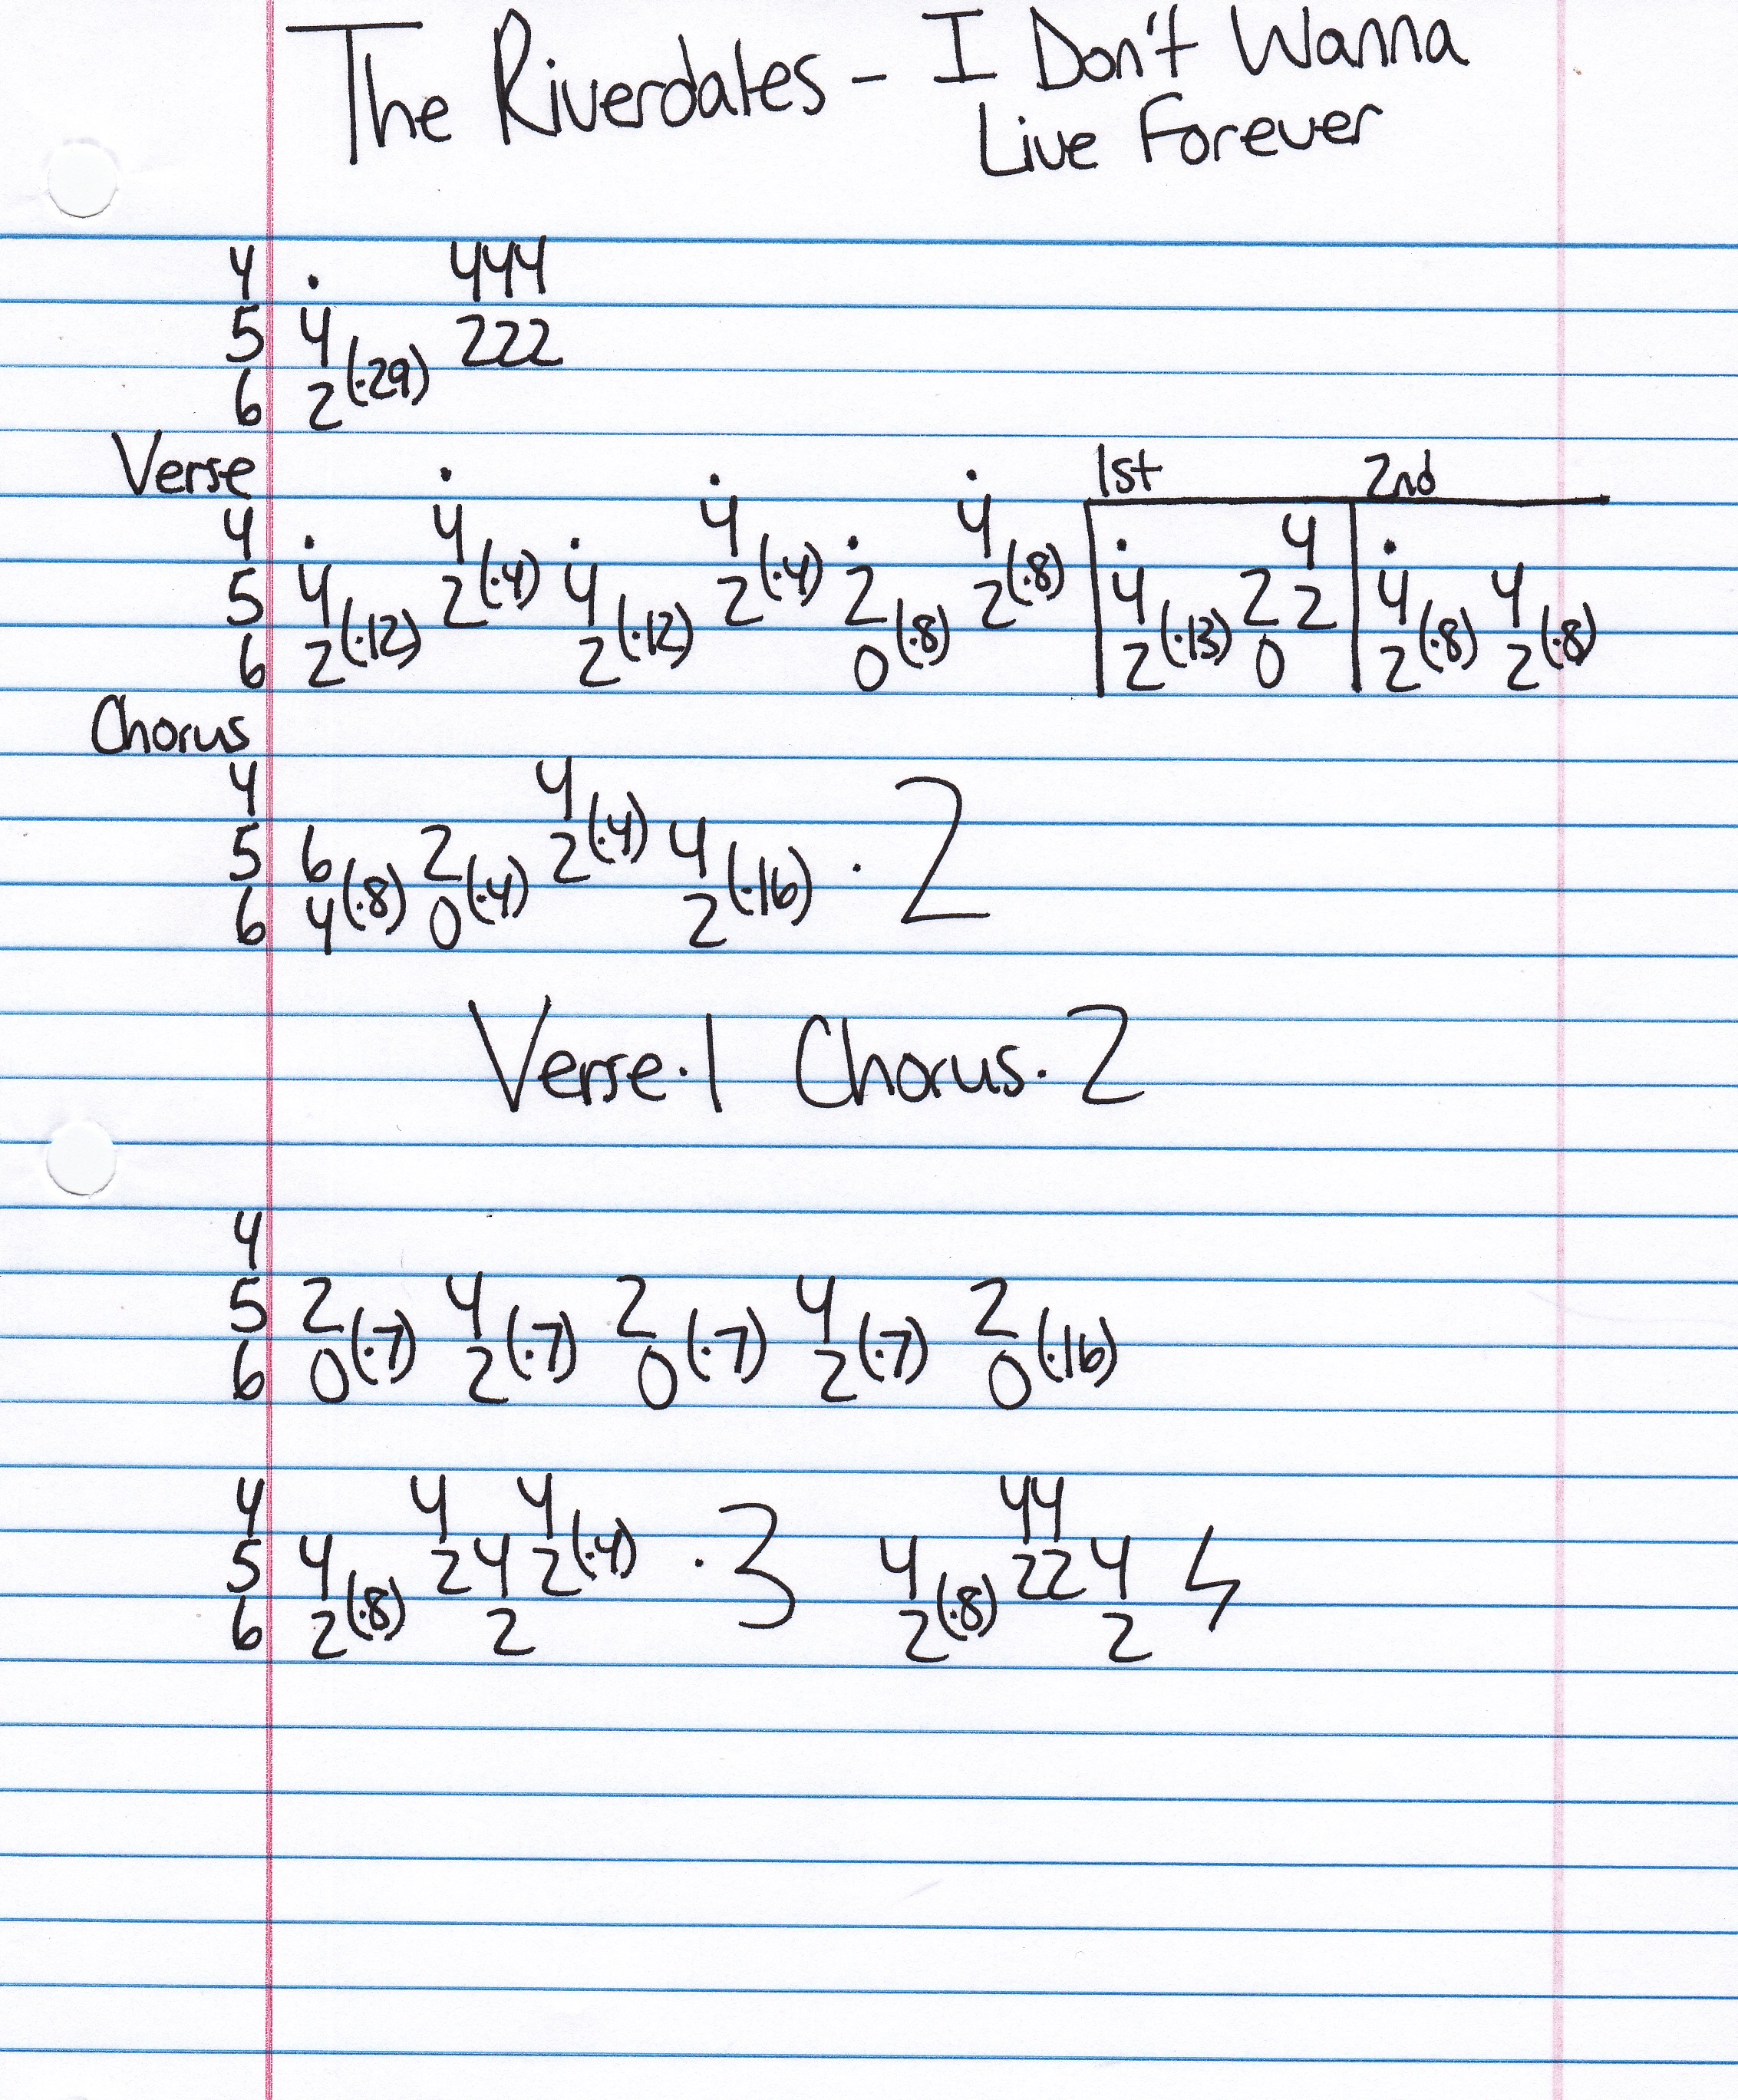 The Riverdales - I Don't Wanna
Live Forever
4 . 444
5 4 (·29) 222
6 2
Verse . . . 1st 2nd
4 . 4 . 4 . 4 . 4 .
5 4 2(·4) 4 2(·4) 2 2(·8) 4 2 2 4 4
6 2(·12) 2(·12) 0(·8) 2(·13) 0 2(·8) 2(·8)
Chorus
4 4
5 6 2 2(·4) 4 · 2
6 4(·8) 0(·4) 2(·16)
Verse·1 Chorus·2
4
5 2 4 2 4 2
6 0(·7) 2(·7) 0(·7) 2(·7) 0(·16)
4 4 4 44
5 4 2 4 2(·4) ·3 4 22 4
6 2(·8) 2 2(·8) 2